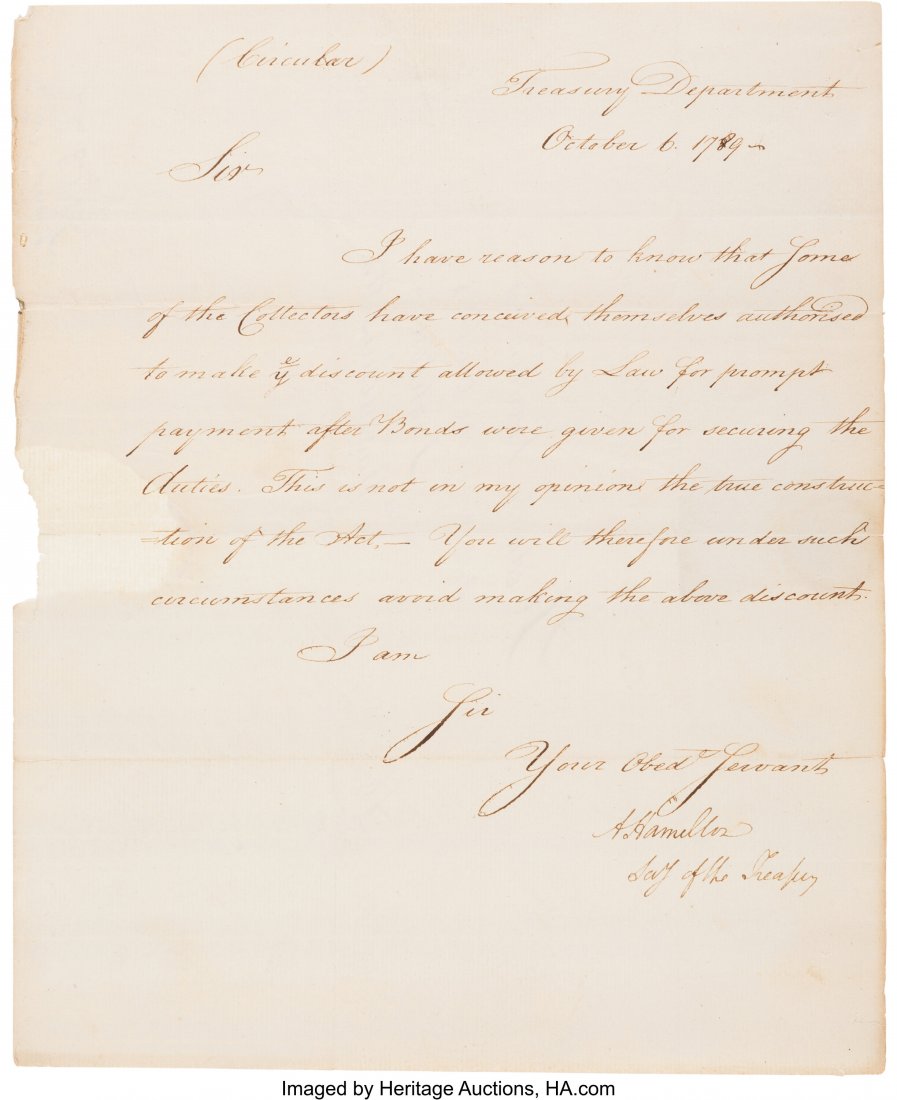 (Circular)
Treasury Department
October 6. 1789
Sir
I have reason to know that some
of the Collectors have conceived themselves authorised
to make ye discount allowed by Law for prompt
payment after Bonds were given for securing the
duties. This is not in my opinion the true construc=
=tion of the Act, — You will therefore under such
circumstances avoid making the above discount.
I am
Sir
Your Obedt Servant
A Hamilton
Secy of the Treasury
Imaged by Heritage Auctions, HA.com